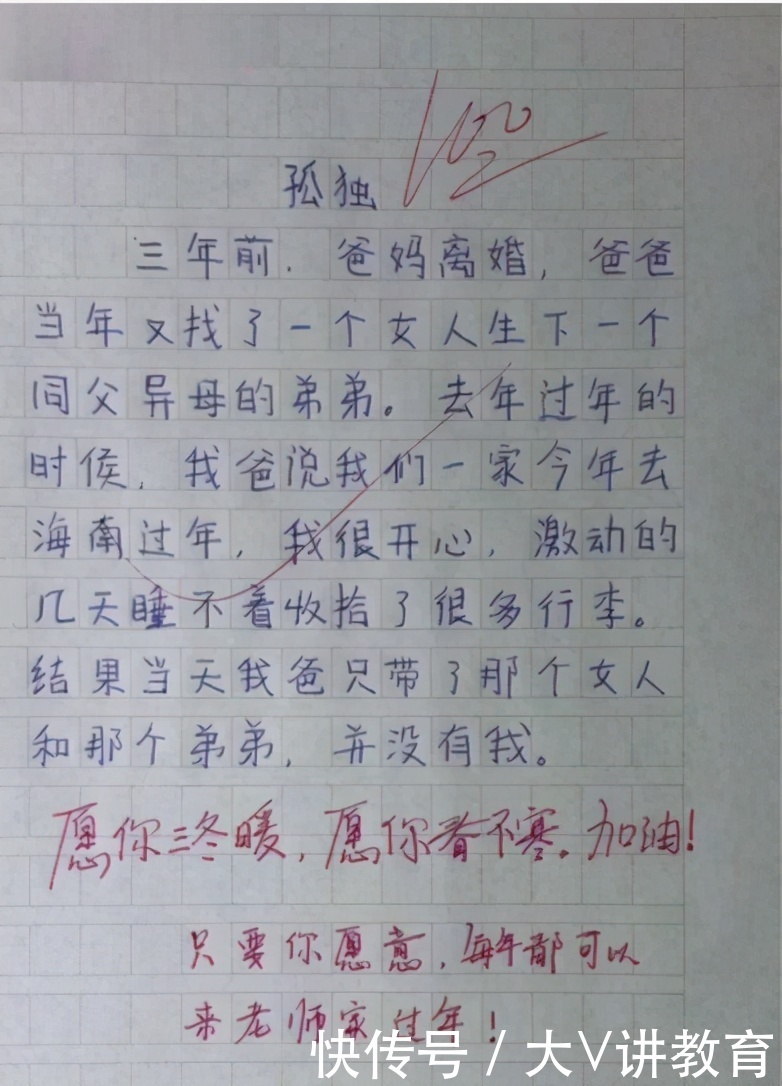 100
孤独
三年前．爸妈离婚，爸爸
当年又找了一个女人生下一个
同父异母的弟弟。去年过年的
时候，我爸说我们一家今年去
海南过年，我很开心，激动的
几天睡不着收拾了很多行李。
结果当天我爸只带了那个女人
和那个弟弟，并没有我。
愿你三冬暖，愿你春不寒。加油！
只要你愿意，每年都可以
来老师家过年！
快传号 / 大V讲教育